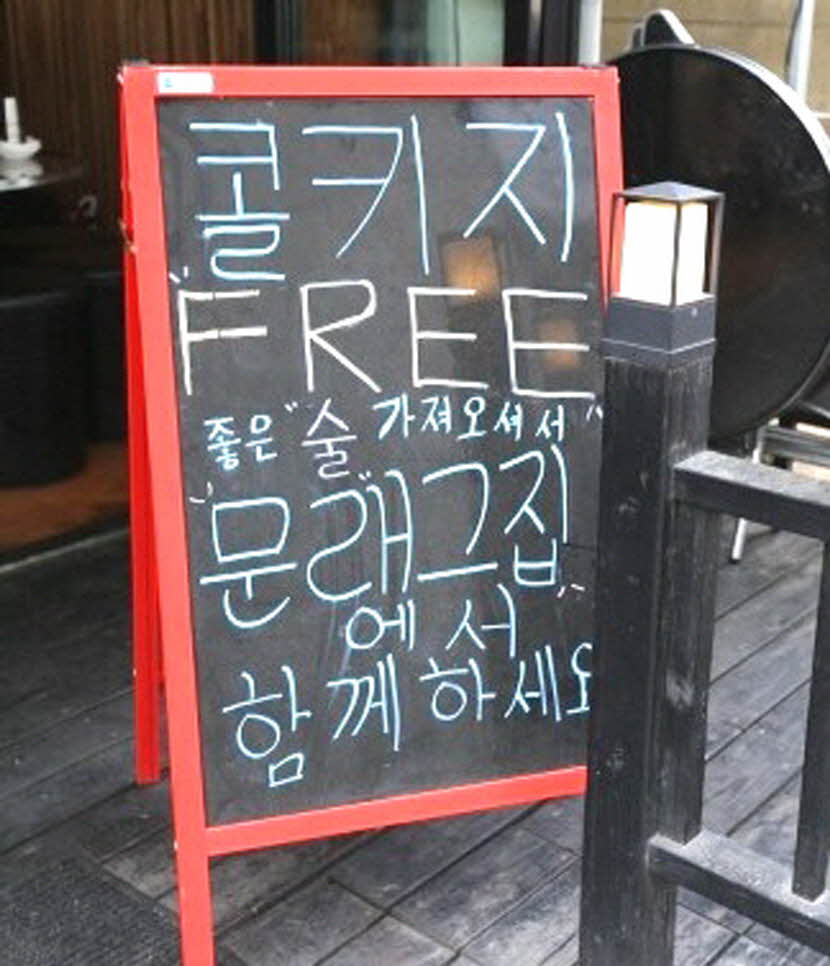 콜키지
FREE
좋은 "술 가져오셔서
"문래그집"
에서
함께하세요